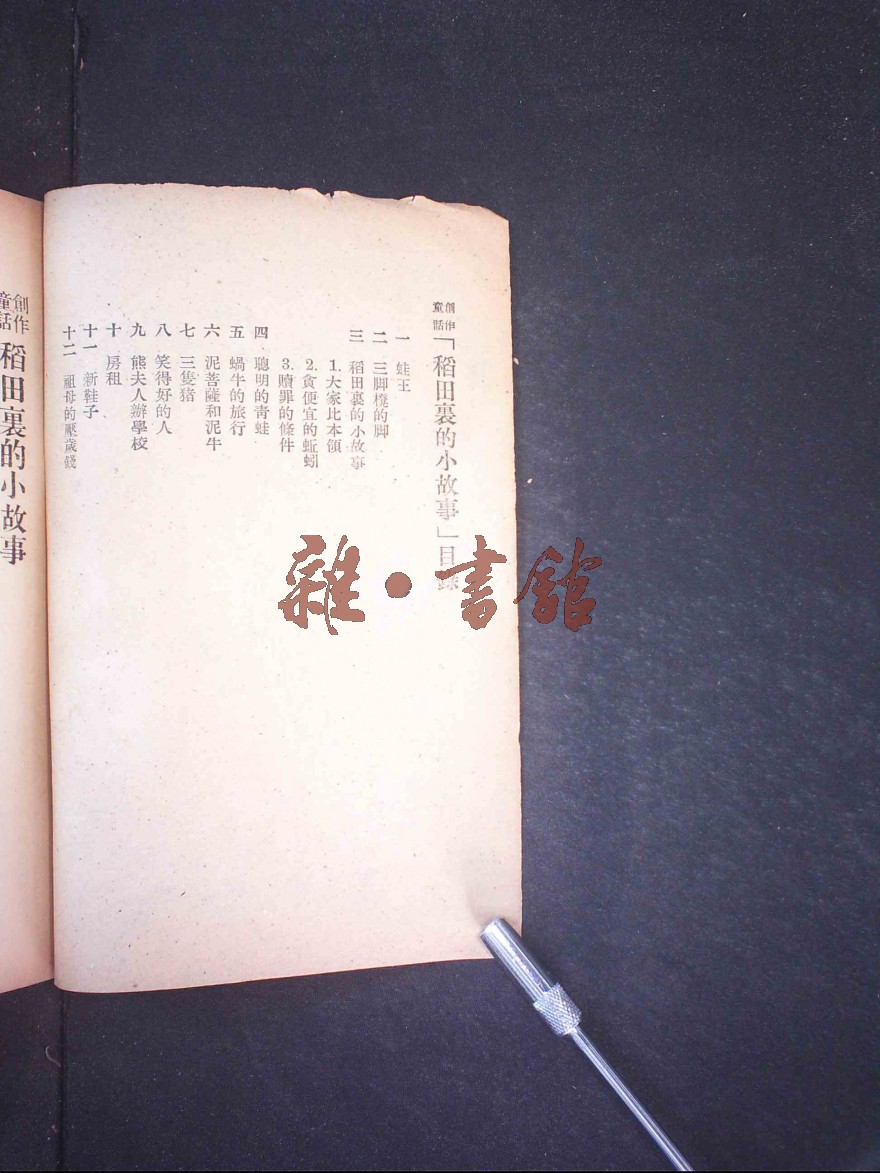 創作童話「稻田裏的小故事」目錄
一 蛙王
二 三脚櫈的脚
三 稻田裏的小故事
1. 大家比本領
2. 貪便宜的蚯蚓
3. 贖罪的條件
四 聰明的青蛙
五 蝸牛的旅行
六 泥菩薩和泥牛
七 三隻猪
八 笑得好的人
九 熊夫人辦學校
十 房租
十一 新鞋子
十二 祖母的壓歲錢
創作童話 稻田裏的小故事
雜·書館